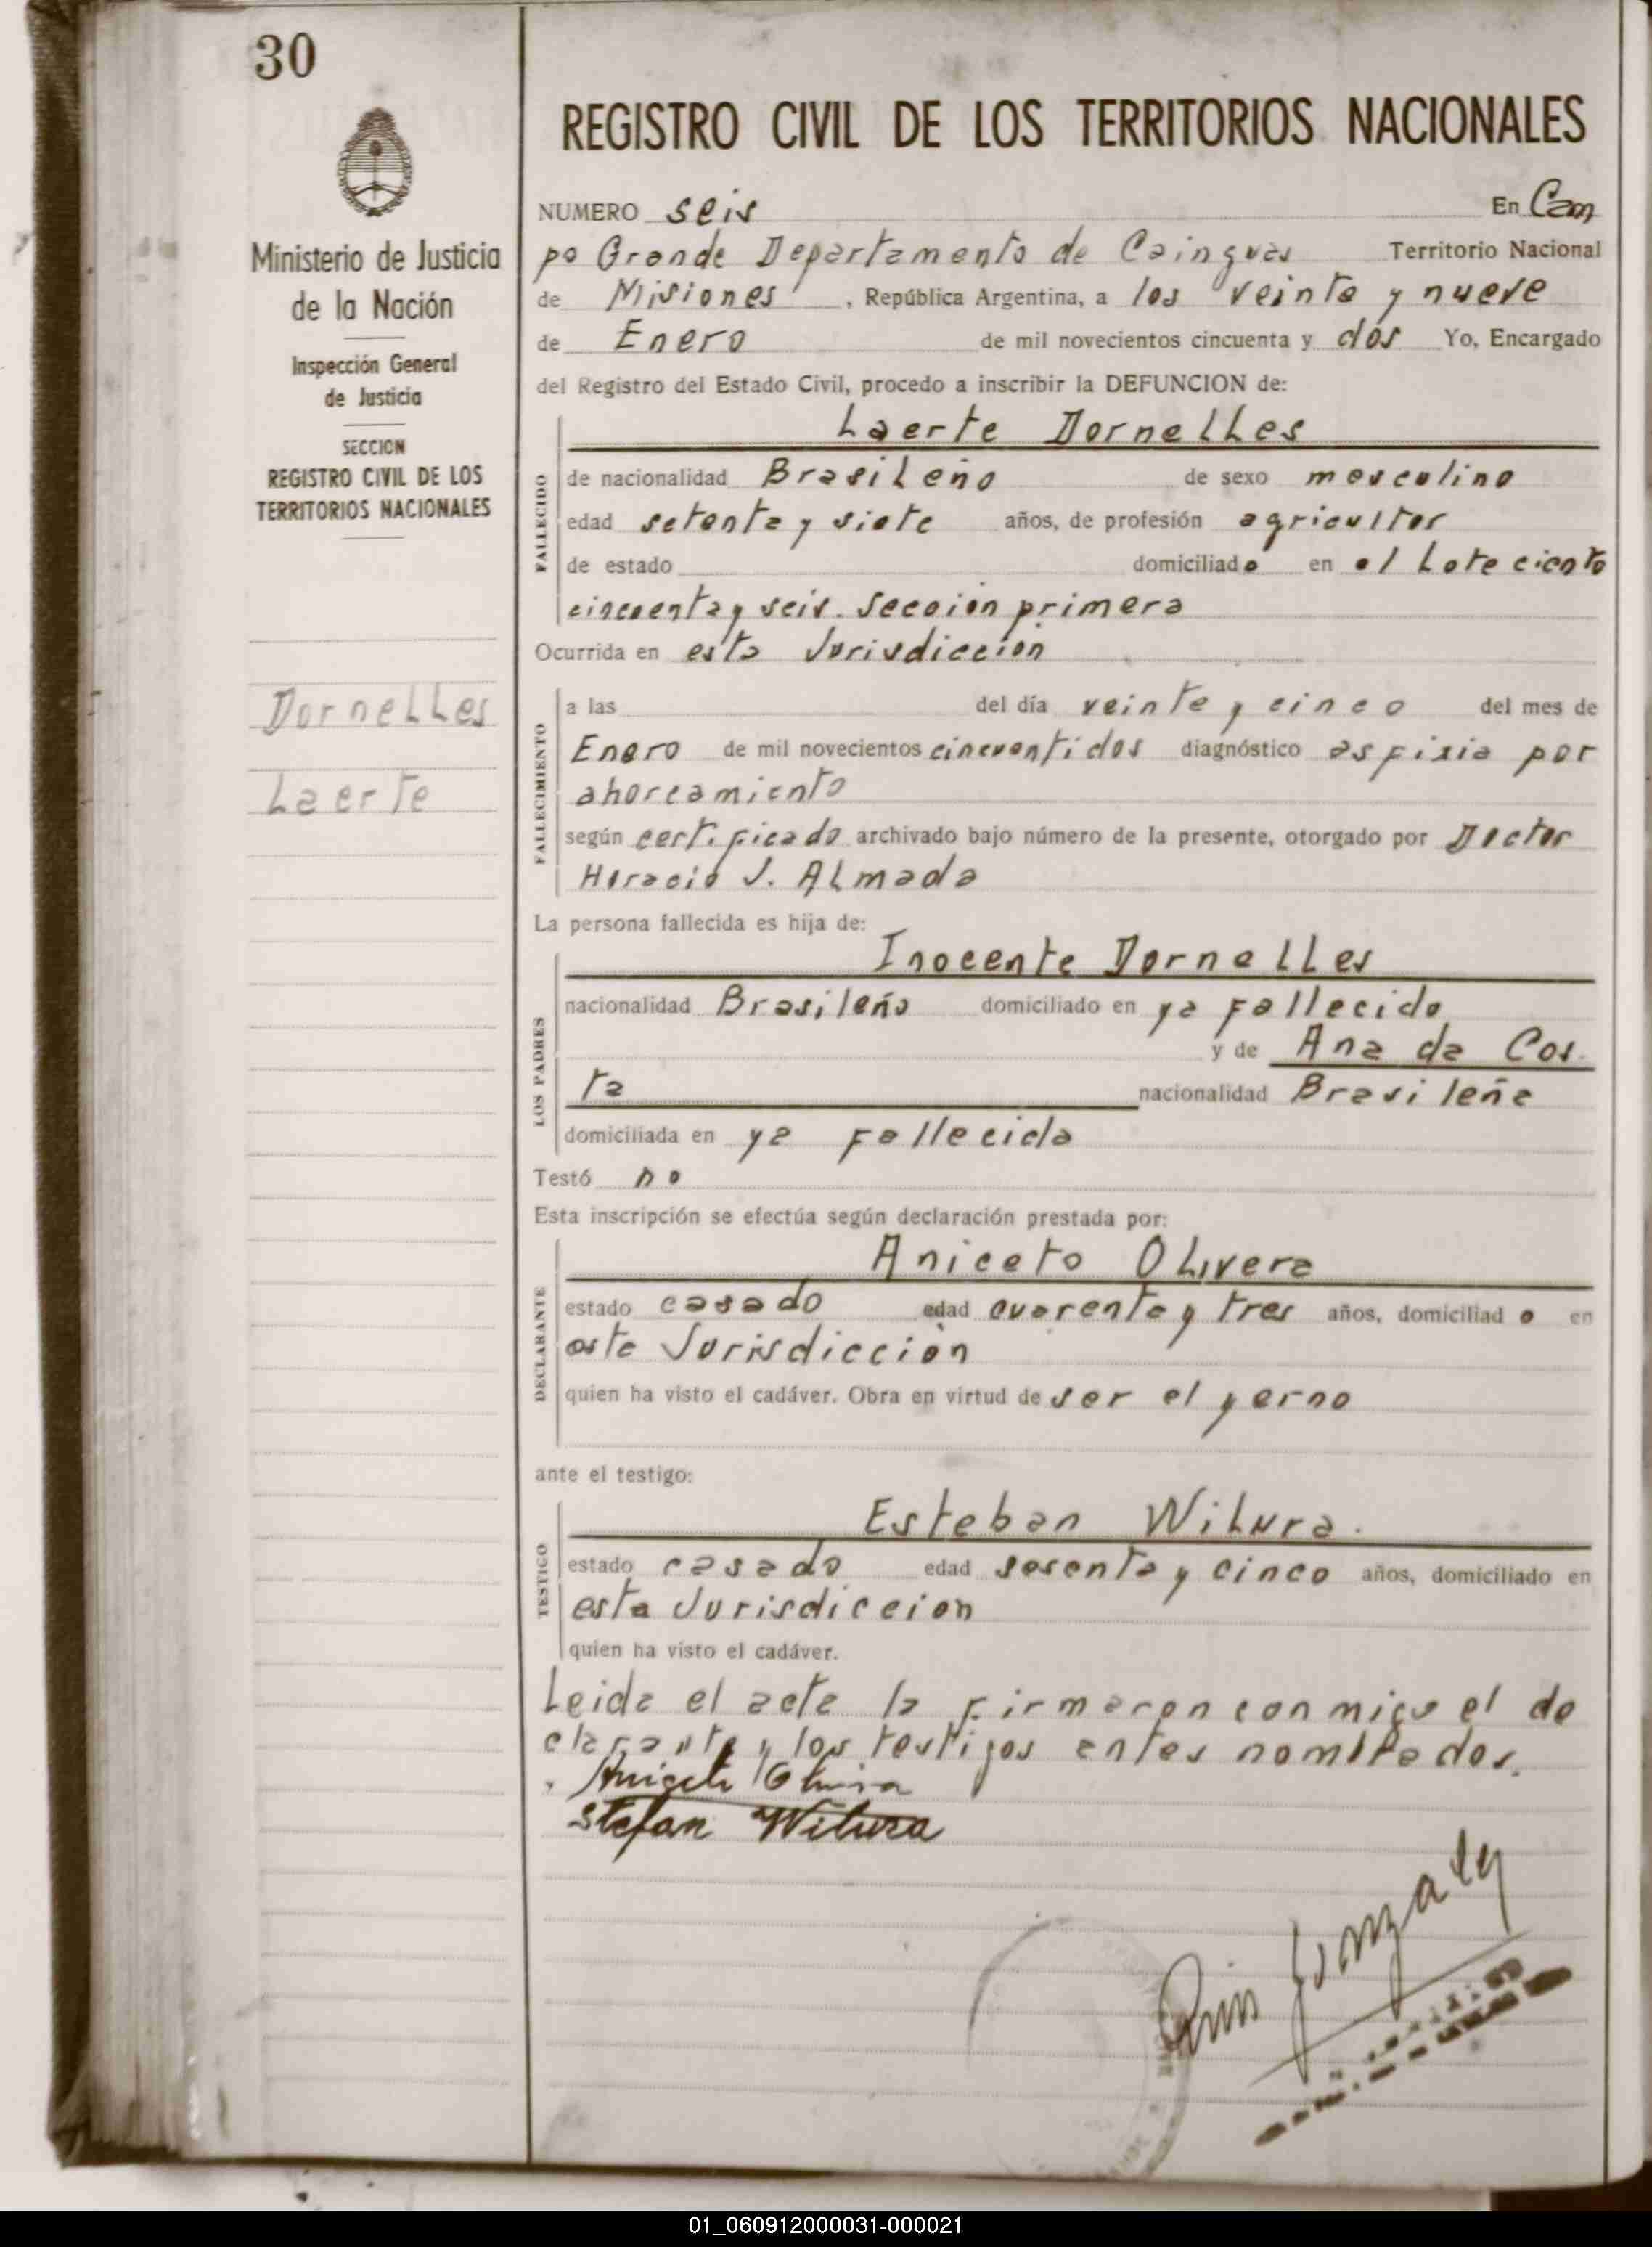 30
Ministerio de Justicia
de la Nación
Inspección General
de Justicia
SECCION
REGISTRO CIVIL DE LOS
TERRITORIOS NACIONALES
Dornelles
Laerte
REGISTRO CIVIL DE LOS TERRITORIOS NACIONALES
NUMERO seis En Cam
po Grande Departamento de Cainguas Territorio Nacional
de Misiones, República Argentina, a los veinte y nueve
de Enero de mil novecientos cincuenta y dos Yo, Encargado
del Registro del Estado Civil, procedo a inscribir la DEFUNCION de:
Laerte Dornelles
FALLECIDO
de nacionalidad Brasileño de sexo masculino
edad setenta y siete años, de profesión agricultor
de estado domiciliado en el Lote ciento
cincuenta y seis. Sección primera
Ocurrida en esta Jurisdicción
FALLECIMIENTO
a las del día veinte y cinco del mes de
Enero de mil novecientos cincuentidos diagnóstico asfixia por
ahorcamiento
según certificado archivado bajo número de la presente, otorgado por Doctor
Horacio J. Almada
La persona fallecida es hija de:
Inocente Dornelles
LOS PADRES
nacionalidad Brasileño domiciliado en ya fallecido
y de Ana da Cos-
ta nacionalidad Brasileña
domiciliada en ya fallecida
Testó no
Esta inscripción se efectúa según declaración prestada por:
Aniceto Olivera
DECLARANTE
estado casado edad cuarenta y tres años, domiciliado en
esta Jurisdicción
quien ha visto el cadáver. Obra en virtud de ser el yerno
ante el testigo:
Esteban Witura.
TESTIGO
estado casado edad sesenta y cinco años, domiciliado en
esta Jurisdiccion
quien ha visto el cadáver.
Leida el acta la firmaron conmigo el de
clarante y los testigos antes nombrados.
Aniceto Olivera
Stefan Witura
Gonzalez
01_060912000031-000021